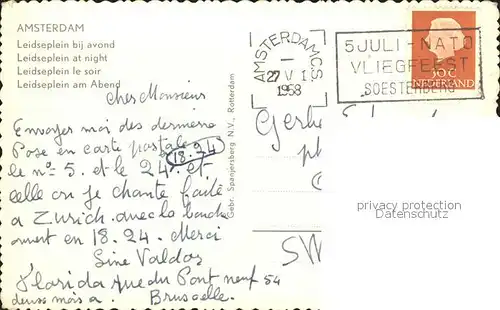 AMSTERDAM
Leidseplein bij avond
Leidseplein at night
Leidseplein le soir
Leidseplein am Abend
cher Monsieur
Envoyer moi des dernieres
Pose en carte postale
18.24
le no 5. et le 24. et
celle ou je chante faite
a Zurich. avec la bouche
18.24. Merci
Florida rue du Pont neuf 54
Bruxcelle.
Gebr. Spanjersberg N.V., Rotterdam
AMSTERDAM C.S.
27 VI
1958
5 JULI - NATO
VLIEGFEEST
SOESTERBERG
30c
NEDERLAND
Gerh
ph
SW
privacy protection
Datenschutz